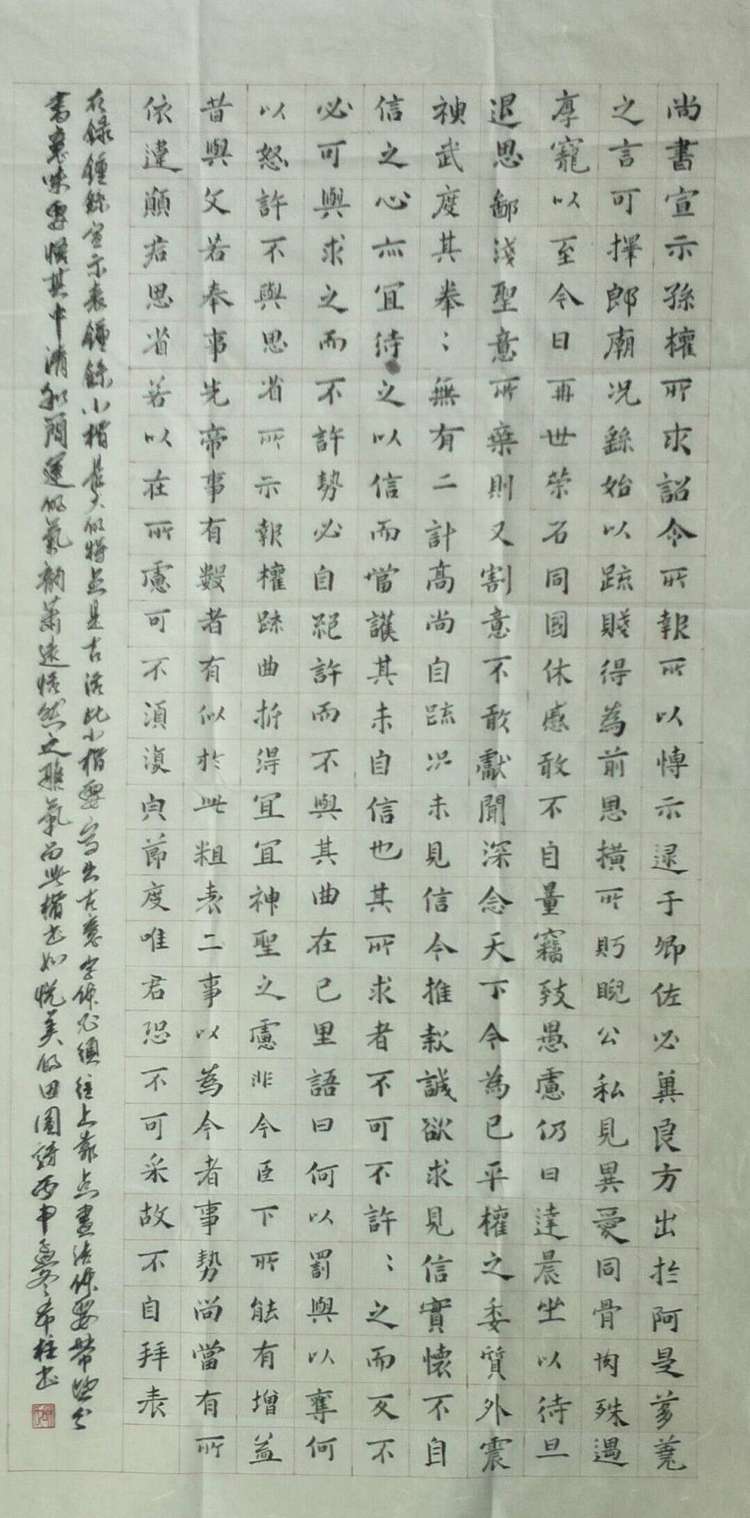 尚書宣示孫權所求詔令所報所以慱示逮于卿佐必冀良方出於阿是芻蕘
之言可擇郎廟況繇始以疏賤得為前恩橫所眄睨公私見異愛同骨肉殊遇
厚寵以至今日再世榮名同國休慼敢不自量竊致愚慮仍日達晨坐以待旦
退思鄙淺聖意所棄則又割意不敢獻聞深念天下今為已平權之委質外震
神武度其拳：無有二計高尚自疏況未見信今推款誠欲求見信實懷不自
信之心亦宜待之以信而當護其未自信也其所求者不可不許：之而反不
必可與求之而不許勢必自絕許而不與其曲在己里語曰何以罰與以奪何
以怒許不與思省所示報權疏曲折得宜宜神聖之慮非今臣下所能有增益
昔與文若奉事先帝事有數者有似於此粗表二事以為今者事勢尚當有所
依違願君思省若以在所慮可不須復與節度唯君恐不可采故不自拜表
右録鍾繇宣示表鍾繇小楷最大的特点是古活此小楷要写出古意字体必須往上靠点畫法体要帶
書意味要慢其中清和簡遠的氣韵蕭遠恬然之雅氣而此楷书如悦美的田園詩丙申孟冬希柱书